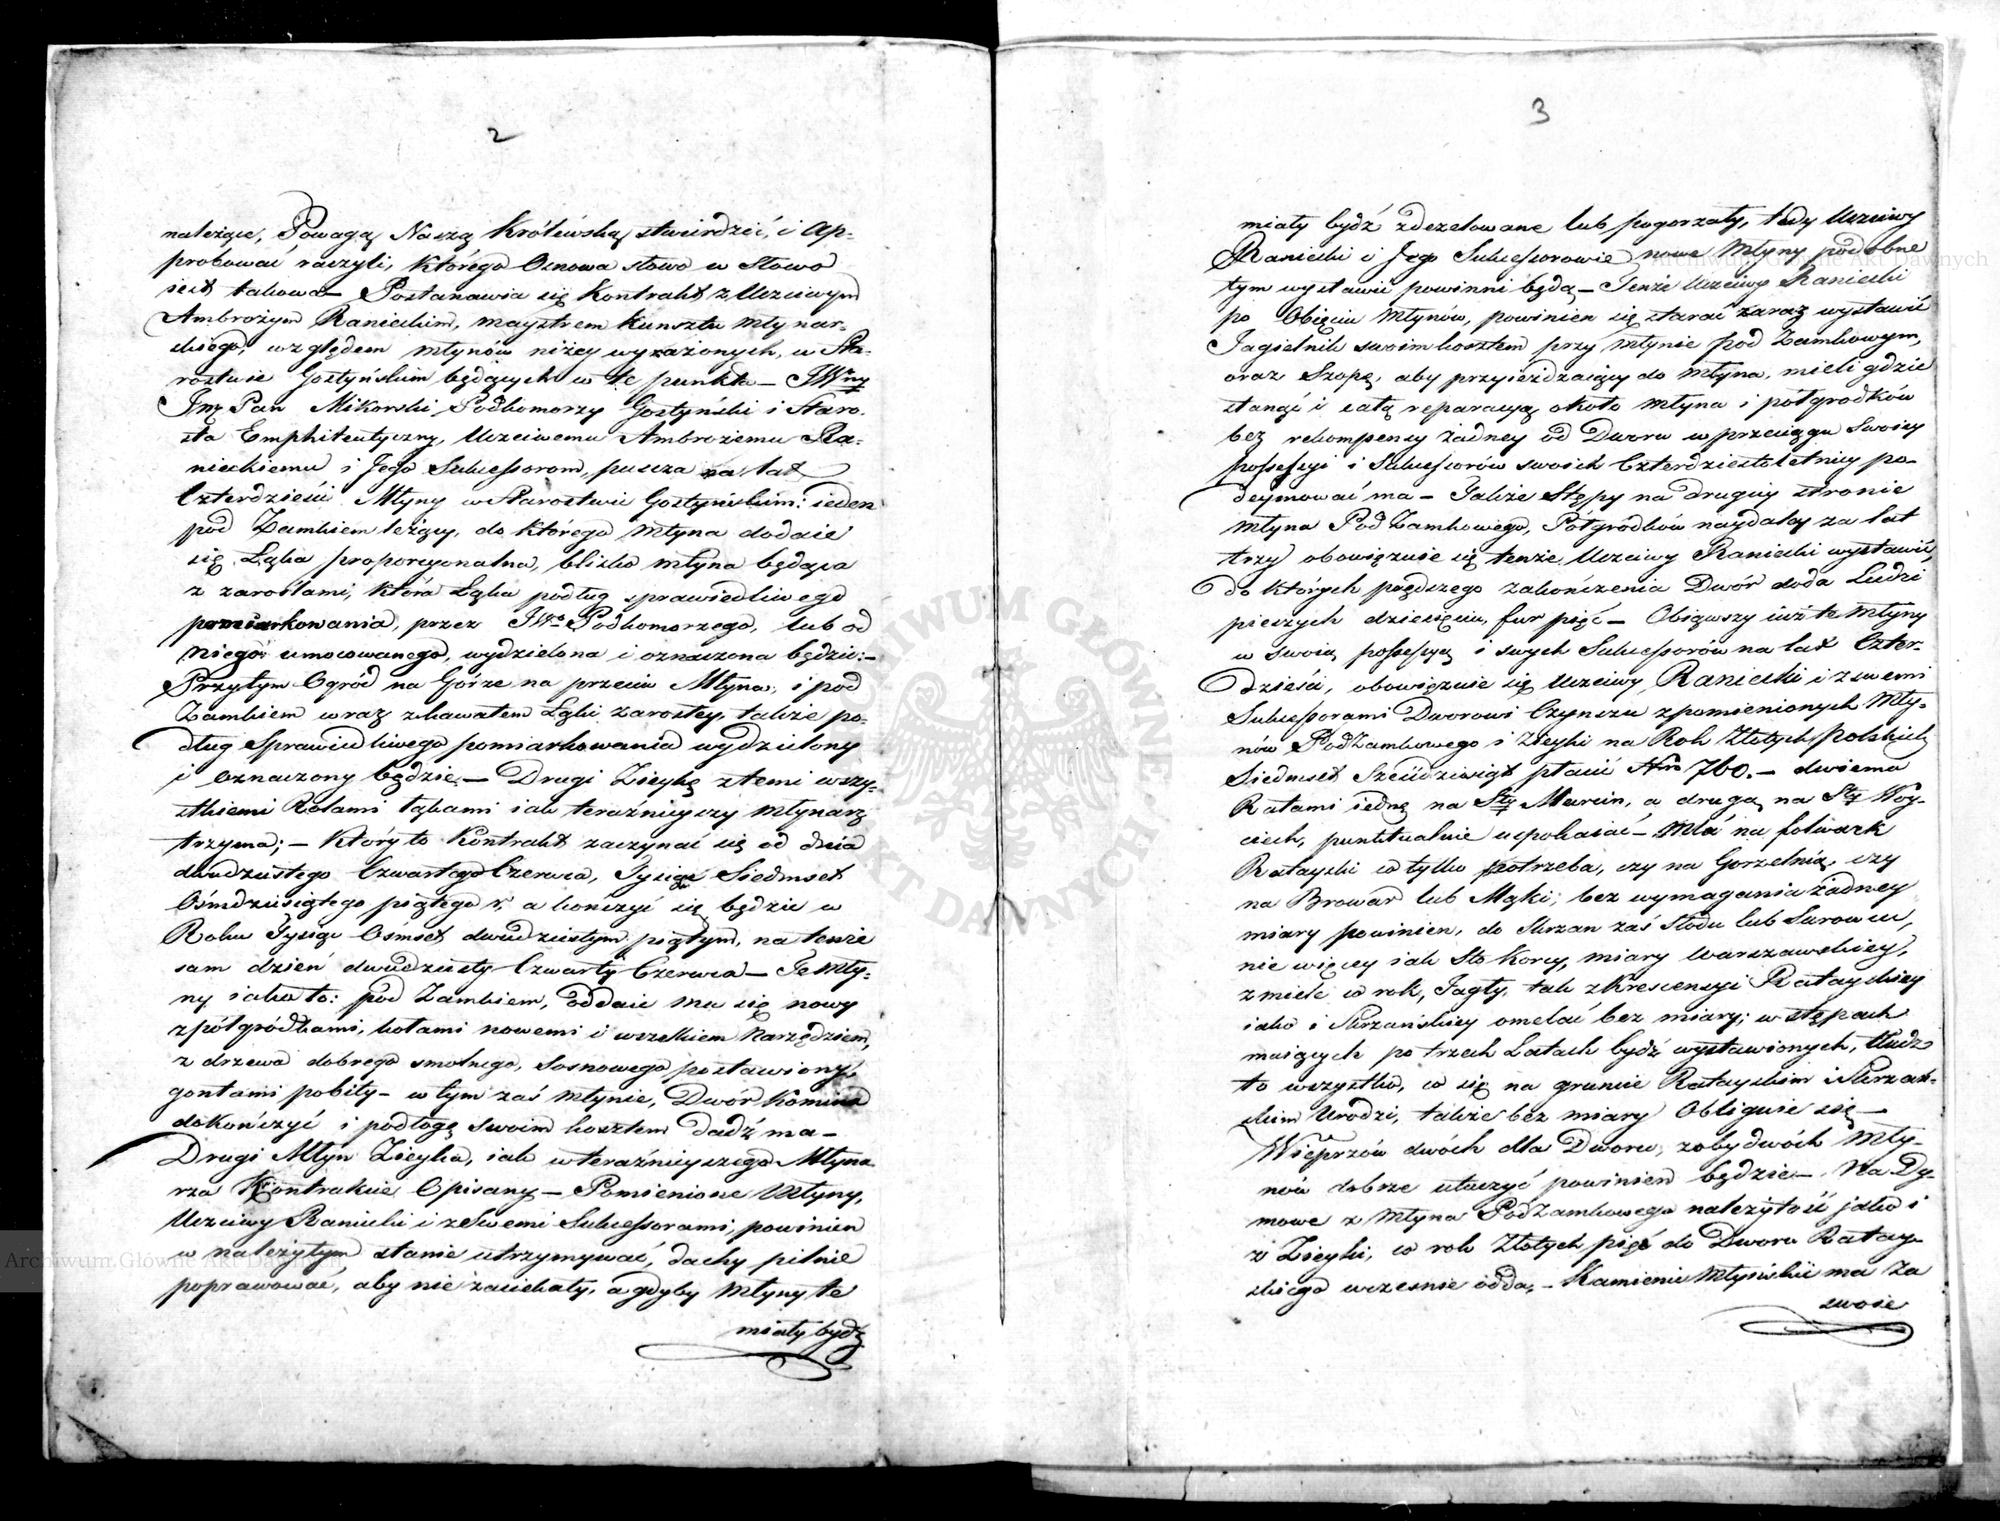 2
należące, Powagą Naszą Królewską stwierdzić, i ap-
probować raczyli, którego Osnowa słowo w Słowo
iest takowa – Postanawia się Kontrakt z Uczciwym
Ambrożym Ranieckim, maystrem kunsztu młynar-
skiego, względem młynów niżey wyrażonych, w Sta-
rostwie Gostyńskim będących w te punkta – JWny
Jmć Pan Mikorski Podkomorzy Gostyński i Staro-
sta Emphiteutyczny, Uczciwemu Ambrożemu Ra-
nieckiemu i Jego Sukcessorom, puszcza na lat
Czterdzieści Młyny w Starostwie Gostyńskim: ieden
pod Zamkiem leżący, do którego Młyna dodaie
się Łąka proporcyonalna, blisko młyna będąca
z zaroślami, która Łąka podług sprawiedliwego
pomiarkowania, przez JWo Podkomorzego, lub od
Niego umocowanego, wydzielona i oznaczona będzie: –
Przytym Ogród na Górze na przeciw Młyna, i pod
Zamkiem wraz z kawałem Łąki zarosłey, także po-
dług Sprawiedliwego pomiarkowania wydzielony
i oznaczony będzie – Drugi Zieykę z temi wszy-
stkiemi Rolami łąkami iak teraźnieyszy Młynarz
trzyma; – Który to Kontrakt zaczynać się od dnia
dwudziestego Czwartego Czerwca, Tysiąc Siedmset
Ośmdziesiątego piątego r, a kończyć się będzie w
Roku Tysiąc Osmset dwudziestym piątym, na tenże
sam dzień dwudziesty Czwarty Czerwca – Te Mły-
ny iako to: pod Zamkiem, oddaie mu się nowy
z półgródkami, kołami nowemi i wszelkiem Narzędziem,
z drzewa dobrego smolnego, Sosnowego postawiony,
gontami pobity – w tym zaś młynie, Dwór Komina
dokończyć i podłogę swoim kosztem dadź ma –
Drugi Młyn Zieyka, iak w teraźnieyszego Młyna-
rza Kontrakcie Opisany – Pomienione Młyny,
Uczciwy Raniecki i ze Swemi Sukcessorami, powinien
w należytym stanie utrzymywać, dachy pilnie
poprawować, aby nie zaciekały, a gdyby Młyny te
miały bydź
3
miały bydź zdezelowane lub pogorzały, tedy Uczciwy
Raniecki i Jego Sukcessorowie nowe Młyny podobne
tym wystawić powinni będą – Tenże Uczciwy Raniecki
po Obięciu Młynów, powinien się starać zaraz wystawić
Jagielnik swoim kosztem przy Młynie pod Zamkowym,
oraz Szopę, aby przyieżdzaiący do Młyna, mieli gdzie
stanąć i całą reparacyą około Młyna i półgrodków
bez rekompensy żadney od Dworu w przeciągu Swoiey
possessyi i Sukcessorów swoich Czterdziestoletniey po-
deymować ma – Także Stępy na drugiey stronie
Młyna Pod Zamkowego, Półgródków naydaley za lat
trzy obowięzuie się tenże Uczciwy Raniecki wystawić,
do których prędszego zakończenia Dwór doda Ludzi
pieszych dziesięciu, fur pięć – Obiąwszy iuż te Młyny
w swoią possessyą i swych Sukcessorów na lat Czter-
dzieści, obowięzuie się Uczciwy Raniecki i z swemi
Sukcessorami Dworowi Czynszu z pomienionych Mły-
nów Pod Zamkowego i Zieyki na Rok Złotych polskich
Siedmset Sześćdziesiąt płacić Nro 760. – dwiema
Ratami iedną na Sty Marcin, a drugą na Sty Woy-
ciech, punktualnie uspokaiać – Mlć na folwark
Ratayski co tylko potrzeba, czy na Gorzelnią, czy
na Browar lub Mąki, bez wymagania żadney
miary powinien, do Skrzan zaś Słodu lub Surowcu,
nie więcey iak Sto Korcy, miary Warszawskiey,
zmiele co rok, Jagły, tak z krescencyi Ratayskiey
iako i Skrzańskiey omełać bez miary; w stępach
maiących po trzech Latach bydź wystawionych, tłudz
to wszystko, co się na gruncie Ratayskim i Skrzań-
skim Urodzi, także bez miary Obliguie się –
Wieprzów dwóch dla Dworu, z obydwóch Mły-
nów dobrze utuczyć powinien będzie – Na Dy-
mowe z Młyna Pod Zamkowego należytość jako i
z Zieyki, co rok Złotych pięć do Dworu Ratay-
skiego wcześnie odda, – Kamienie Młyńskie ma za
swoie